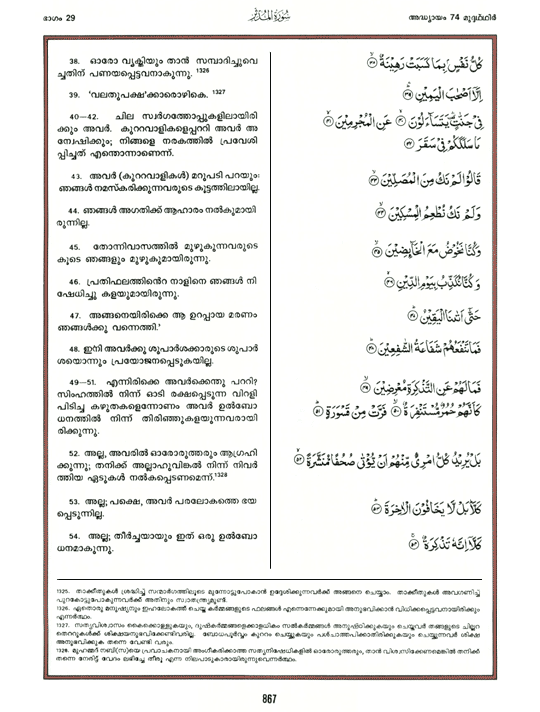 ഭാഗം 29
سُورَةُ المُدَّثِّر
അദ്ധ്യായം 74 മുദ്ദഥ്ഥിർ
38. ഓരോ വ്യക്തിയും താൻ സമ്പാദിച്ചുവെ
ച്ചതിന് പണയപ്പെട്ടവനാകുന്നു. 1326
39. 'വലതുപക്ഷ'ക്കാരൊഴികെ. 1327
40—42. ചില സ്വർഗത്തോപ്പുകളിലായിരി
ക്കും അവർ. കുററവാളികളെപ്പററി അവർ അ
ന്വേഷിക്കും; നിങ്ങളെ നരകത്തിൽ പ്രവേശി
പ്പിച്ചത് എന്തൊന്നാണെന്ന്.
43. അവർ (കുററവാളികൾ) മറുപടി പറയും:
ഞങ്ങൾ നമസ്കരിക്കുന്നവരുടെ കൂട്ടത്തിലായില്ല.
44. ഞങ്ങൾ അഗതിക്ക് ആഹാരം നൽകുമായി
രുന്നില്ല.
45. തോന്നിവാസത്തിൽ മുഴുകുന്നവരുടെ
കൂടെ ഞങ്ങളും മുഴുകുമായിരുന്നു.
46. പ്രതിഫലത്തിൻെറ നാളിനെ ഞങ്ങൾ നി
ഷേധിച്ചു കളയുമായിരുന്നു.
47. അങ്ങനെയിരിക്കെ ആ ഉറപ്പായ മരണം
ഞങ്ങൾക്കു വന്നെത്തി.'
48. ഇനി അവർക്കു ശുപാർശക്കാരുടെ ശുപാർ
ശയൊന്നും പ്രയോജനപ്പെടുകയില്ല.
49—51. എന്നിരിക്കെ അവർക്കെന്തു പററി?
സിംഹത്തിൽ നിന്ന് ഓടി രക്ഷപ്പെടുന്ന വിറളി
പിടിച്ച കഴുതകളെന്നോണം അവർ ഉൽബോ
ധനത്തിൽ നിന്ന് തിരിഞ്ഞുകളയുന്നവരായി
രിക്കുന്നു.
52. അല്ല, അവരിൽ ഓരോരുത്തരും ആഗ്രഹി
ക്കുന്നു; തനിക്ക് അല്ലാഹുവിങ്കൽ നിന്ന് നിവർ
ത്തിയ ഏടുകൾ നൽകപ്പെടണമെന്ന്.1328
53. അല്ല; പക്ഷെ, അവർ പരലോകത്തെ ഭയ
പ്പെടുന്നില്ല.
54. അല്ല; തീർച്ചയായും ഇത് ഒരു ഉൽബോ
ധനമാകുന്നു.
كُلُّ نَفْسٍ بِمَا كَسَبَتْ رَهِينَةٌ ۝٣٨
إِلَّا أَصْحَٰبَ الْيَمِينِ ۝٣٩
فِي جَنَّٰتٍ يَتَسَآءَلُونَ ۝٤٠ عَنِ الْمُجْرِمِينَ ۝٤١
مَا سَلَكَكُمْ فِي سَقَرَ ۝٤٢
قَالُوا لَمْ نَكُ مِنَ الْمُصَلِّينَ ۝٤٣
وَلَمْ نَكُ نُطْعِمُ الْمِسْكِينَ ۝٤٤
وَكُنَّا نَخُوضُ مَعَ الْخَآئِضِينَ ۝٤٥
وَكُنَّا نُكَذِّبُ بِيَوْمِ الدِّينِ ۝٤٦
حَتَّىٰ أَتَىٰنَا الْيَقِينُ ۝٤٧
فَمَا تَنفَعُهُمْ شَفَاعَةُ الشَّٰفِعِينَ ۝٤٨
فَمَا لَهُمْ عَنِ التَّذْكِرَةِ مُعْرِضِينَ ۝٤٩
كَأَنَّهُمْ حُمُرٌ مُّسْتَنفِرَةٌ ۝٥٠ فَرَّتْ مِن قَسْوَرَةٍ ۝٥١
بَلْ يُرِيدُ كُلُّ امْرِئٍ مِّنْهُمْ أَن يُؤْتَىٰ صُحُفًا مُّنَشَّرَةً ۝٥٢
كَلَّا بَل لَّا يَخَافُونَ الْآخِرَةَ ۝٥٣
كَلَّا إِنَّهُ تَذْكِرَةٌ ۝٥٤
1325. താക്കീതുകൾ ശ്രദ്ധിച്ച് സന്മാർഗത്തിലൂടെ മുന്നോട്ടുപോകാൻ ഉദ്ദേശിക്കുന്നവർക്ക് അങ്ങനെ ചെയ്യാം. താക്കീതുകൾ അവഗണിച്ച്
പുറകോട്ടുപോകുന്നവർക്ക് അതിനും സ്വാതന്ത്ര്യമുണ്ട്.
1326. ഏതൊരു മനുഷ്യനും ഇഹലോകത്ത് ചെയ്ത കർമ്മങ്ങളുടെ ഫലങ്ങൾ എന്നെന്നേക്കുമായി അനുഭവിക്കാൻ വിധിക്കപ്പെട്ടവനായിരിക്കും
എന്നർത്ഥം.
1327. സത്യവിശ്വാസം കൈക്കൊള്ളുകയും, ദുഷ്കർമ്മങ്ങളെക്കാളധികം സൽകർമ്മങ്ങൾ അനുഷ്ഠിക്കുകയും ചെയ്തവർ തങ്ങളുടെ ചില്ലറ
തെററുകൾക്ക് ശിക്ഷയനുഭവിക്കേണ്ടിവരില്ല. ബോധപൂർവ്വം കുററം ചെയ്യുകയും പശ്ചാത്തപിക്കാതിരിക്കുകയും ചെയ്യുന്നവർ ശിക്ഷ
അനുഭവിക്കുക തന്നെ വേണ്ടി വരും.
1328. മുഹമ്മദ് നബി(സ)യെ പ്രവാചകനായി അംഗീകരിക്കാത്ത സത്യനിഷേധികളിൽ ഓരോരുത്തരും, താൻ വിശ്വസിക്കണമെങ്കിൽ തനിക്ക്
തന്നെ നേരിട്ട് വേദം ലഭിച്ചേ തീരൂ എന്ന നിലപാടുകാരായിരുന്നുവെന്നർത്ഥം.
867